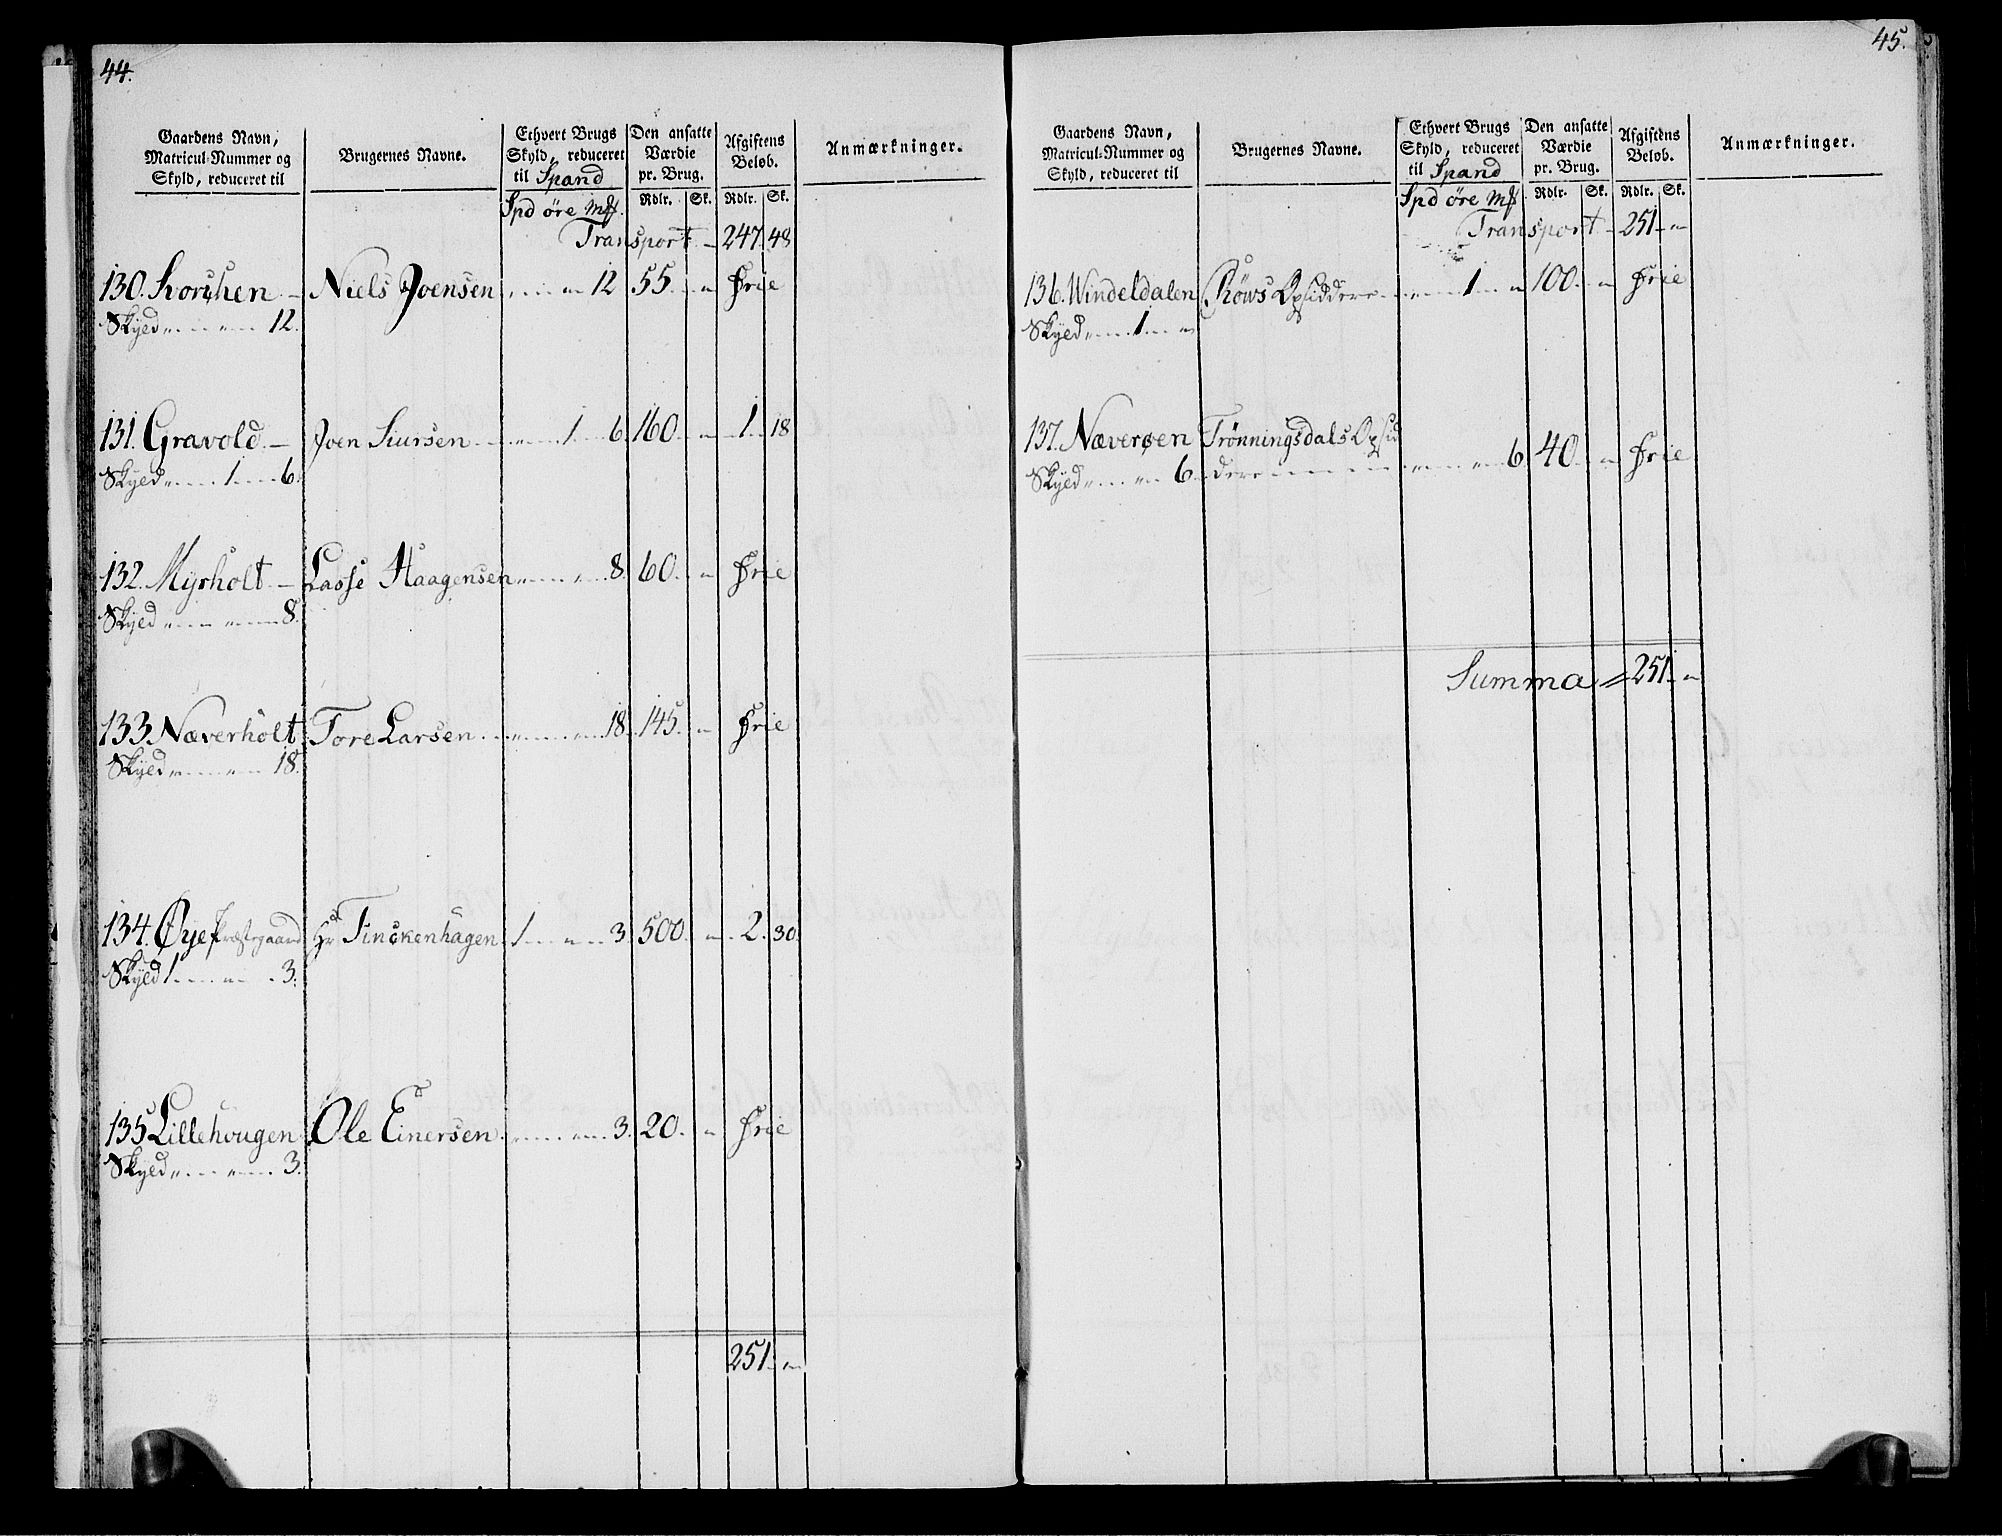 44.
Gaardens Navn, Matricul-Nummer og Skyld, reduceret til
Brugernes Navne.
Ethvert Brugs Skyld, reduceret til Spand
Den ansatte Værdie pr. Brug.
Afgiftens Beløb.
Anmærkninger.
Spd øre Mk Rdlr. Sk. Rdlr. Sk.
Transport 247 48
130. Korshen Niels Joensen 12 55 " Frie
Skyld 12.
131. Gravold Joen Siursen 1 6 160 " 1 18
Skyld 1 6
132. Myrholt Lasse Haagensen 8 60 " Frie
Skyld 8
133 Næverholt Tore Larsen 18 145 " Frie
Skyld 18.
134. Øye Præstegaard Hr Tinckenhagen 1 " 3. 500 " 2. 30.
Skyld 1 " 3.
135 Lillehougen Ole Einersen 3. 20. " Frie
Skyld 3.
251. "
45.
Gaardens Navn, Matricul-Nummer og Skyld, reduceret til
Brugernes Navne.
Ethvert Brugs Skyld, reduceret til Spand
Den ansatte Værdie pr. Brug.
Afgiftens Beløb.
Anmærkninger.
Spd øre Mk Rdlr. Sk. Rdlr. Sk.
Transport 251 "
136. Windeldalen Røws Opsiddere 1 " 100 " Frie
Skyld 1 "
137. Næverøen Trønningsdals Opsid
Skyld 6. dere 6 40 " Frie
Summa 251. "